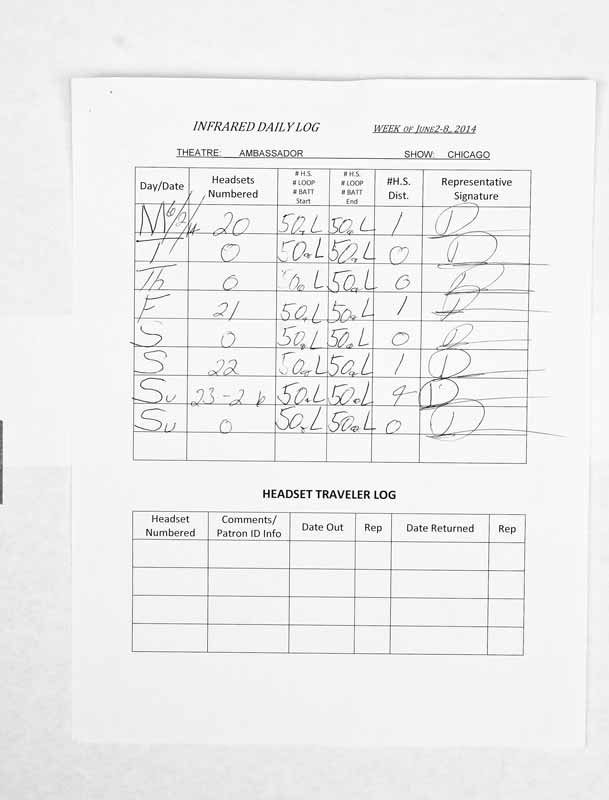 INFRARED DAILY LOG WEEK OF JUNE2-8, 2014
THEATRE: AMBASSADOR SHOW: CHICAGO
Day/Date Headsets Numbered # H.S. # LOOP # BATT Start # H.S. # LOOP # BATT End #H.S. Dist. Representative Signature
M 6/2/14 20 50 L 50 L 1 D
T 0 50 L 50 L 0 D
Th 0 50 L 50 L 0
F 21 50 L 50 L 1 D
S 0 50 L 50 L 0 D
S 22 50 L 50 L 1 D
Su 23-26 50 L 50 L 4 D
Su 0 50 L 50 L 0 D
HEADSET TRAVELER LOG
Headset Numbered Comments/ Patron ID Info Date Out Rep Date Returned Rep